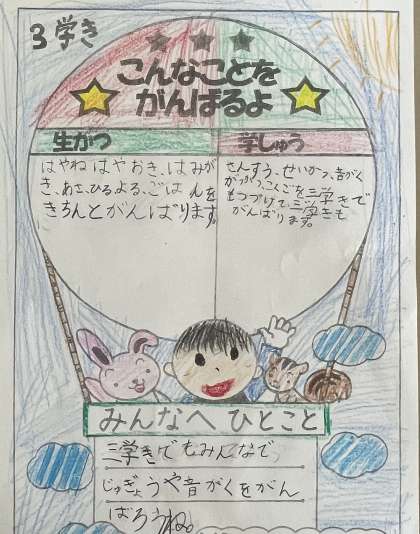 3学き
こんなことを
がんばるよ
生がつ
学しゅう
はやねはやおき、はみが
き、あさ、ひるよる、ごはんを
きちんとがんばります。
さんすう、せいかつ、音がく
こくごを三学きで
もつづけて三学きも
がんばります。
みんなへ ひとこと
三学きでもみんなで
じゅぎょうや音がくをがん
ばろうね。